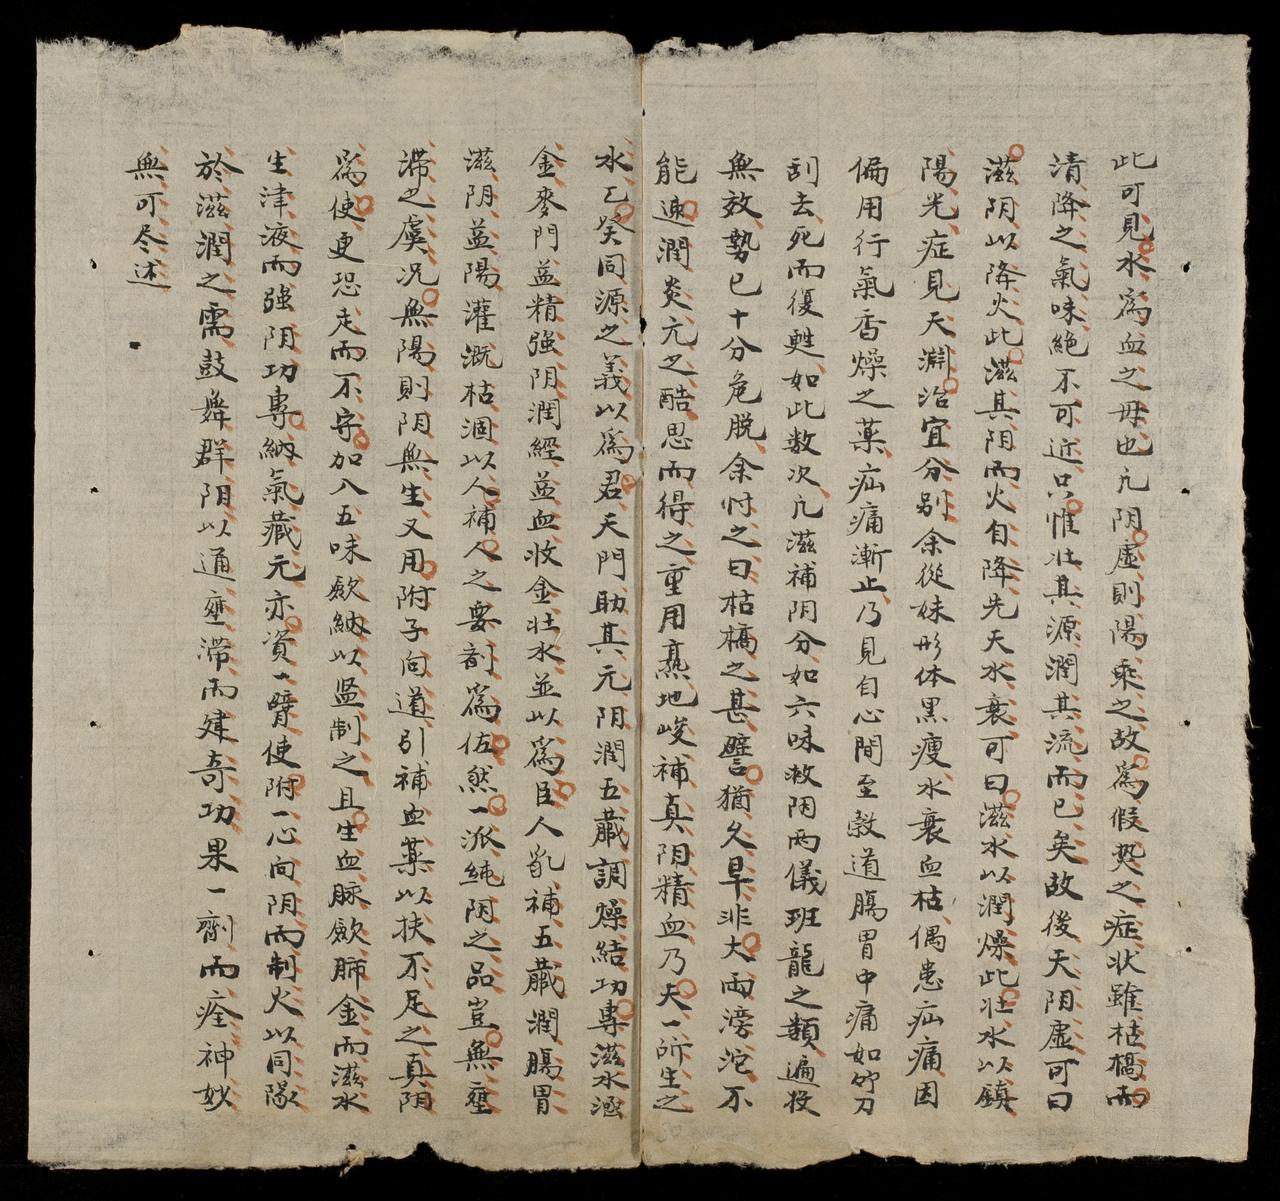 此可見水爲血之母也凢阴虛則陽乘之故爲假热之症状雖枯槁而
清降之氣味絕不可近只惟壮其源潤其流而已矣故後天阴虛可曰
滋阴以降火此滋其阴而火自降先天水衰可曰滋水以潤燥此壮水以鎮
陽光症見天淵治宜分别余從妹形体黒瘦水衰血枯偶患疝痛因
偏用行氣香燥之薬疝痛漸止乃見自心間至穀道膓胃中痛如竹刀
刮去死而復甦如此数次凢滋補阴分如六味救阴两儀班龍之類遍投
無效勢已十分危脱余忖之曰枯槁之甚譬猶久旱非大雨滂沱不
能速潤炎亢之酷思而得之重用熟地峻補真阴精血乃天一所生之
水乙癸同源之義以爲君天門助其元阴潤五藏調燥結功專滋水涵
金麥門益精強阴潤經益血收金壮水並以爲臣人乳補五藏潤膓胃
滋阴益陽灌溉枯涸以人補人之要剤爲佐然一派純阴之品豈無壅
滞之虞况無陽則阴無生又用附子向道引補血薬以扶不足之真阴
爲使更恐走而不守加入五味歛納以监制之且生血脉歛肺金而滋水
生津液而強阴功專納氣藏元亦資一臂使附一心向阴而制火以同隊
於滋潤之需鼓舞群阴以通壅滞而建奇功果一劑而痊神妙
無可尽述